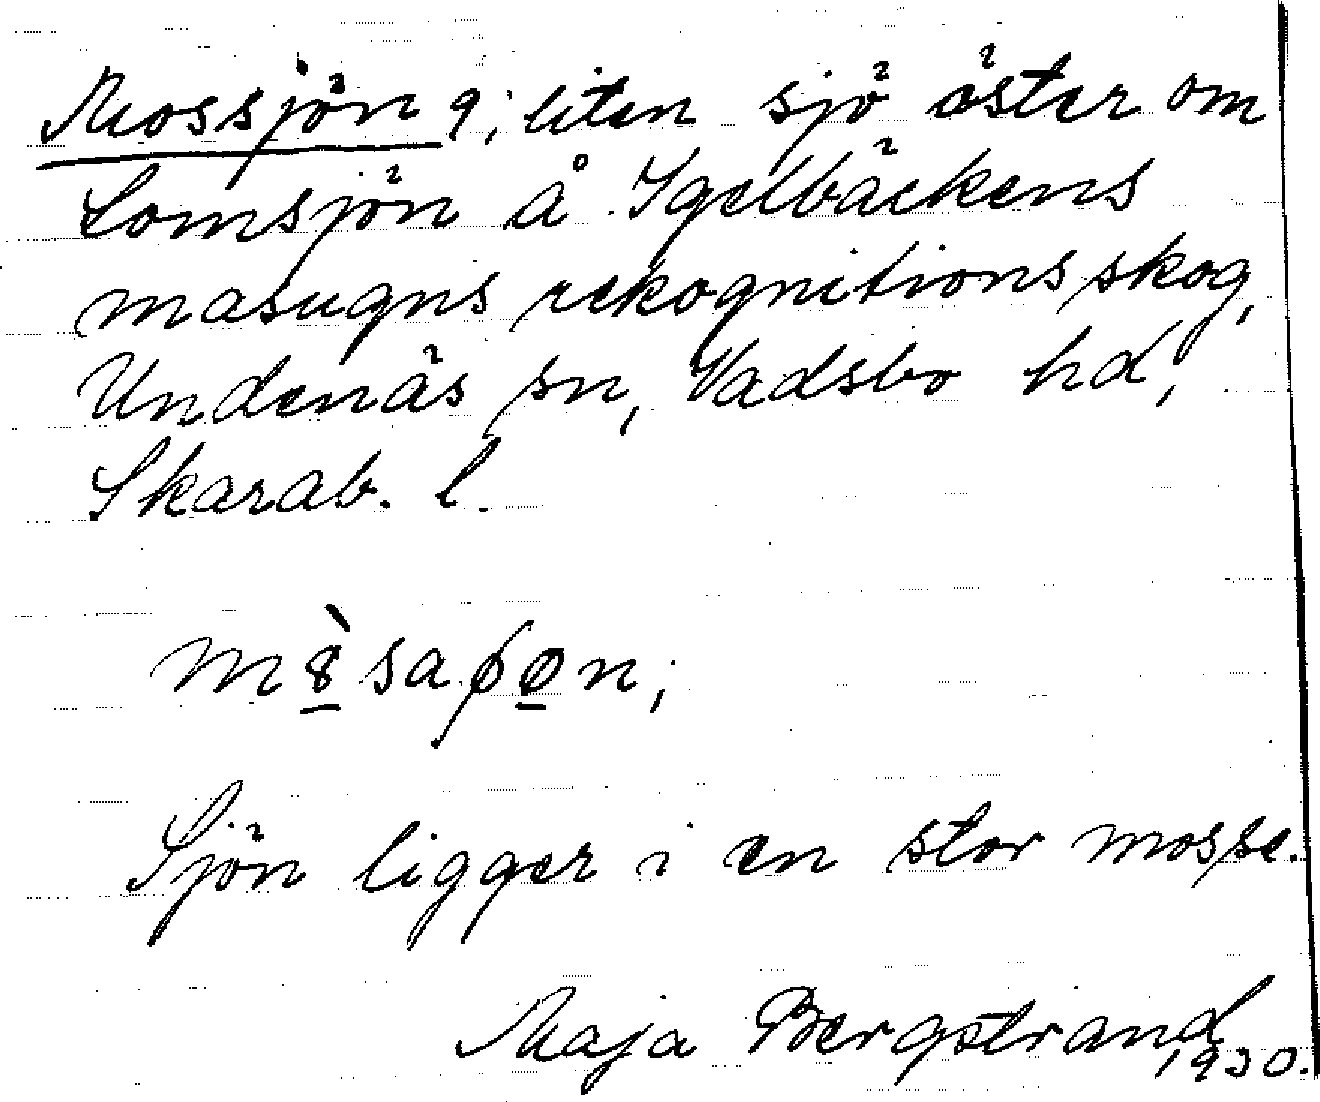 Mossjön 9; liten sjö öster om
Lomsjön å Igelbäckens
masugns rekognitionsskog,
Undenäs sn, Vadsbo hd,
Skarab. l.
Sjön ligger i en stor mosse.
Maja Bergstrand
1930.